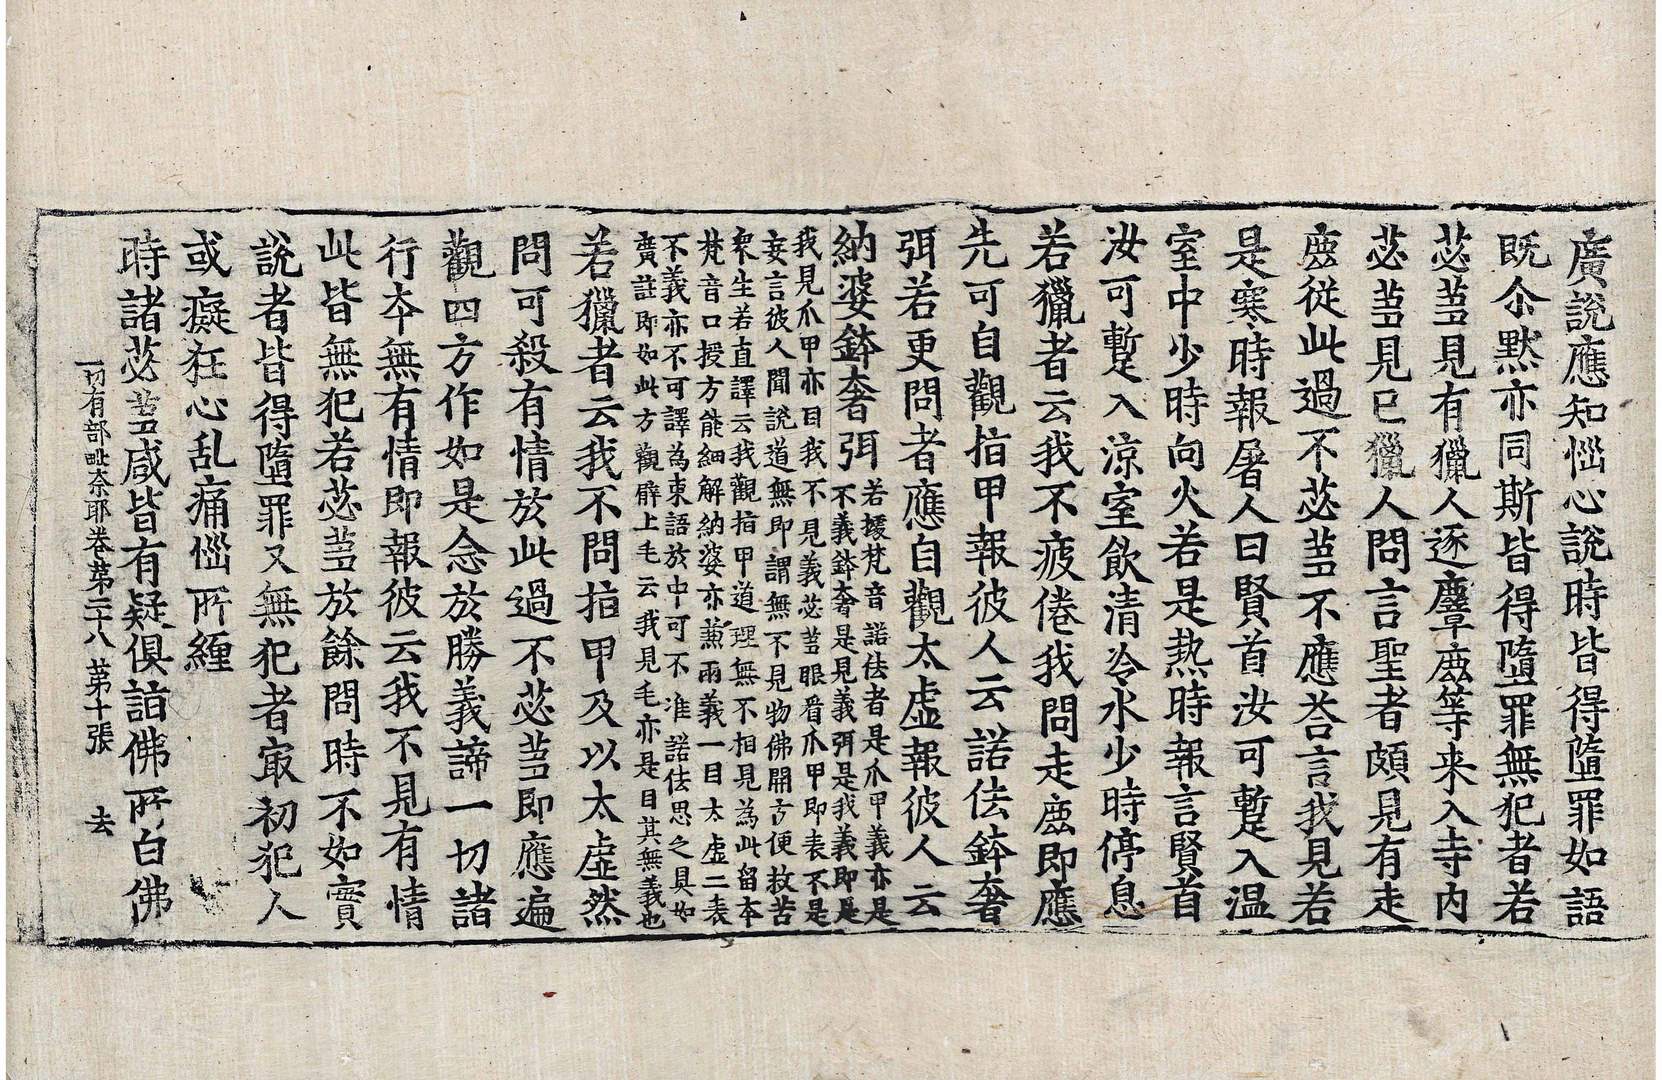 廣說應知惱心說時皆得墮罪如語
既尒黙亦同斯皆得墮罪無犯者若
苾芻見有獵人逐麞鹿等来入寺内
苾芻見已獵人問言聖者頗見有走
鹿從此過不苾芻不應荅言我見若
是寒時報屠人曰賢首汝可暫入温
室中少時向火若是熱時報言賢首
汝可暫入涼室飲清冷水少時停息
若獵者云我不疲倦我問走鹿即應
先可自觀指甲報彼人云諾佉鉢奢
弭若更問者應自觀太虛報彼人云
納婆鉢奢弭
若據梵音諾佉者是爪甲義亦是
不義鉢奢是見義弭是我義即是
我見爪甲亦目我不見義苾芻眼看爪甲即表不是
妄言彼人聞說道無即謂無不見物佛開方便救苦
衆生若直譯云我觀指甲道理無不相見為此留本
梵音口授方能細解納婆亦兼兩義一目太虛二表
不義亦不可譯為東語於中可不准諾佉思之具如
廣註即如此方觀臂上毛云我見毛亦是目其無義也
若獵者云我不問指甲及以太虛然
問可殺有情於此過不苾芻即應遍
觀四方作如是念於勝義諦一切諸
行本無有情即報彼云我不見有情
此皆無犯若苾芻於餘問時不如實
說者皆得墮罪又無犯者㝡初犯人
或癡狂心乱痛惱所纏
時諸苾芻咸皆有疑俱詣佛所白佛
一切有部毗奈耶卷第二十八 第十張 去